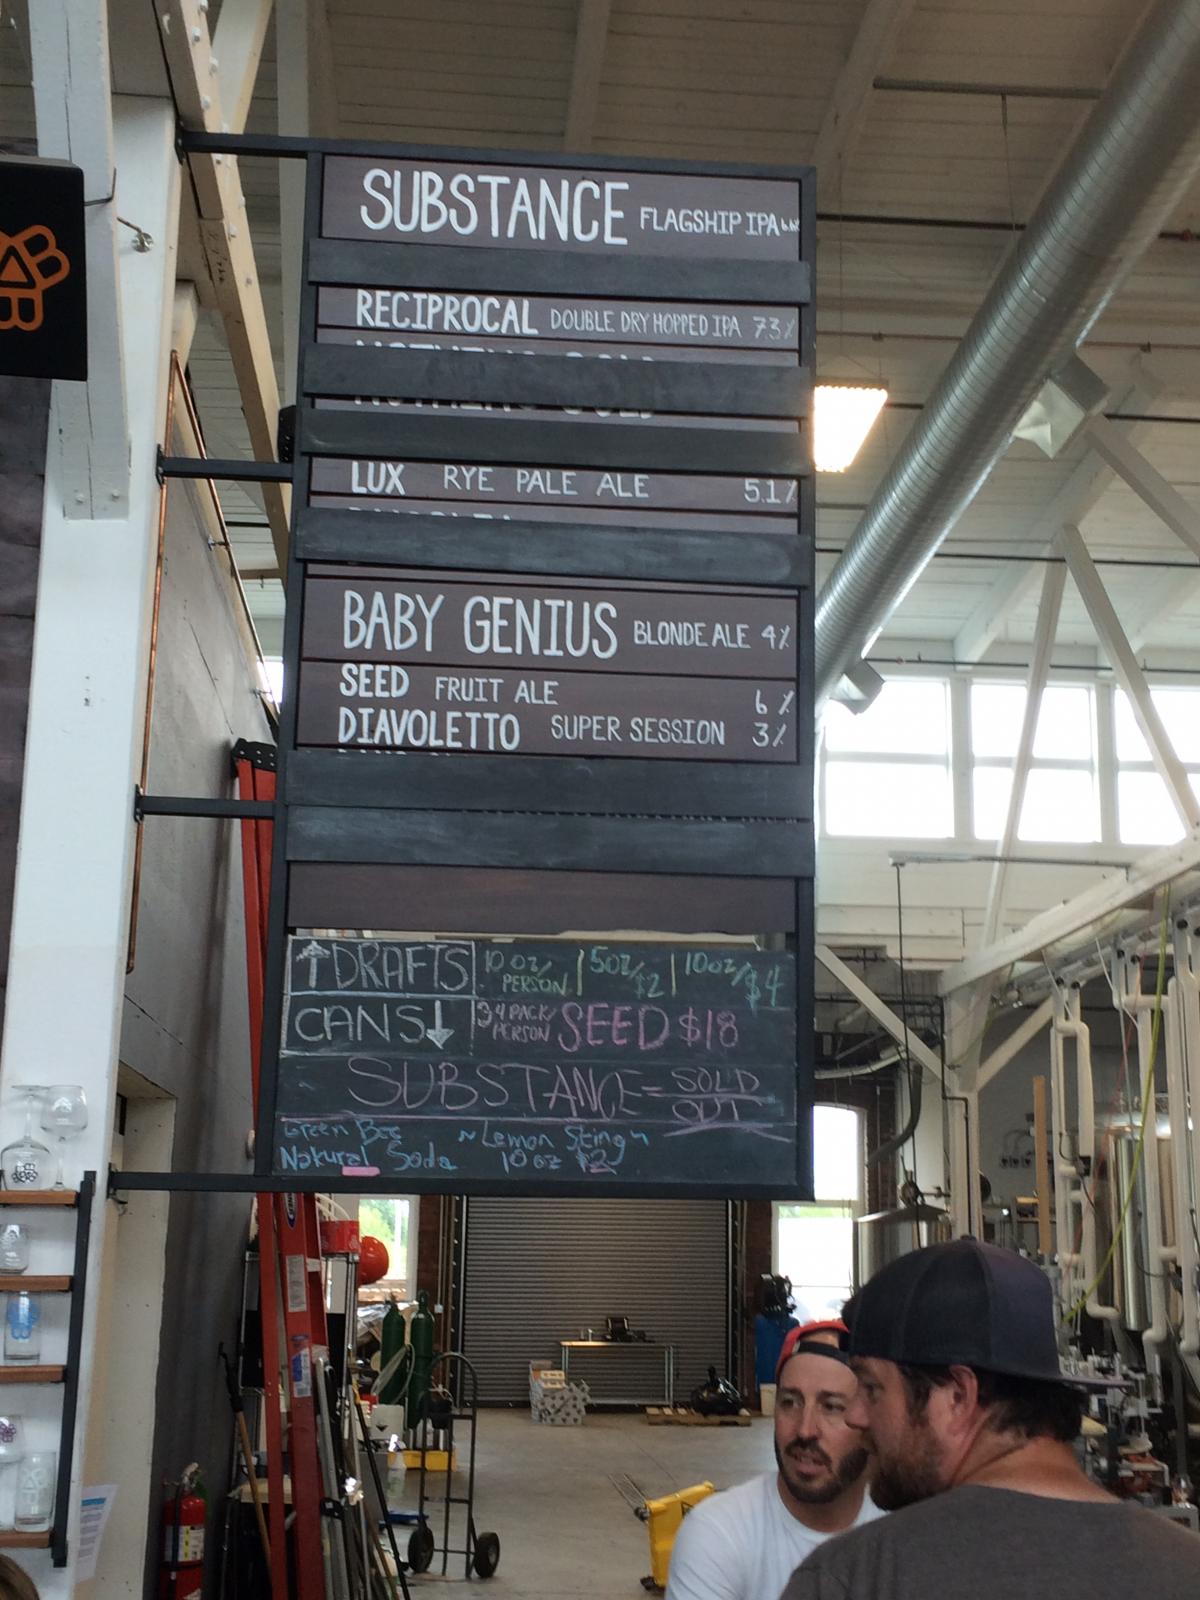 SUBSTANCE FLAGSHIP IPA
RECIPROCAL DOUBLE DRY HOPPED IPA 7.3%
LUX RYE PALE ALE 5.1%
BABY GENIUS BLONDE ALE 4%
SEED FRUIT ALE 6%
DIAVOLETTO SUPER SESSION 3%
↑DRAFTS 10oz/PERSON | 5oz/$2 | 10oz/$4
CANS↓ 3 4PACK/PERSON SEED $18
SUBSTANCE- SOLD OUT
Green Bee ~Lemon Sting~
Natural Soda 10oz $2